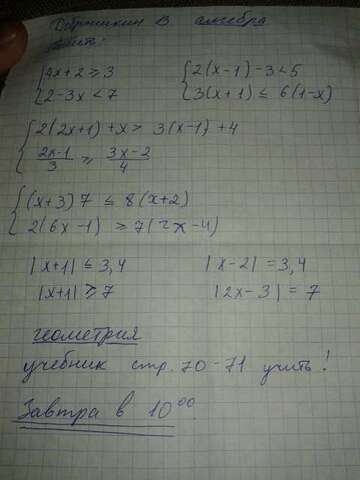 В алгебра
4x+2 ≥ 3    2(x-1)-3<5
2-3x < 7    3(x+1) ≤ 6(1-x)
2(2x+1)+x > 3(x-1)+4
2x-1/3 ≥ 3x-2/4
(x+3)7 ≤ 8(x+2)
2(6x-1) ≥ 7(2x-4)
|x+1| ≤ 3,4    |x-2| = 3,4
|x+1| ≥ 7    |2x-3| = 7
геометрия
учебник стр. 70-71 учить!
Завтра в 10 00